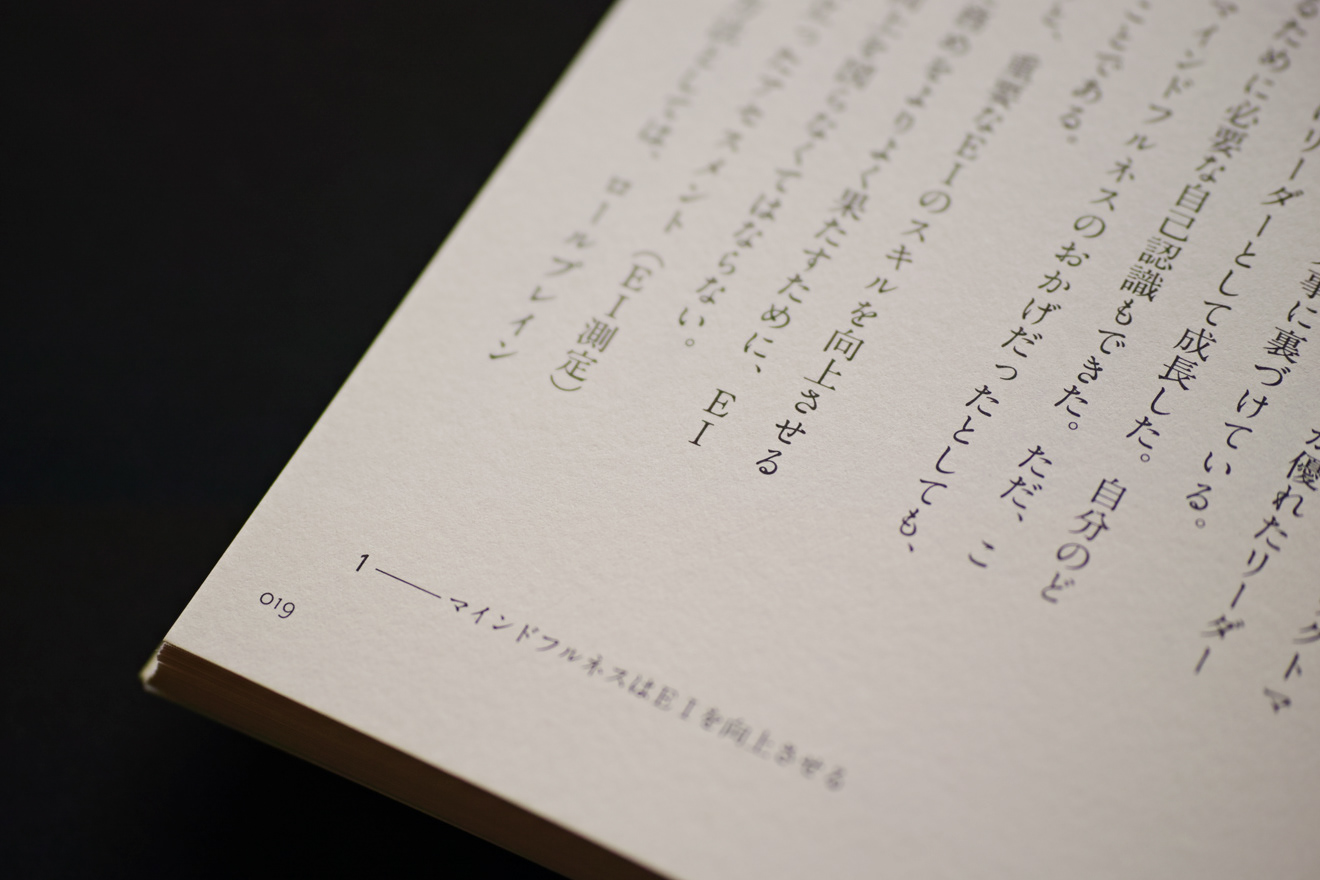 クトマ
が優れたリーダー
事に裏づけている。
リーダーとして成長した。自分のど
るために必要な自己認識もできた。ただ、こ
マインドフルネスのおかげだったとしても、
ことである。
と、重要なEIのスキルを向上させる
務めをよりよく果たすために、EI
上を図らなくてはならない。
ったアセスメント（EI測定）
としては、ロールプレイン
1――マインドフルネスはEIを向上させる
019